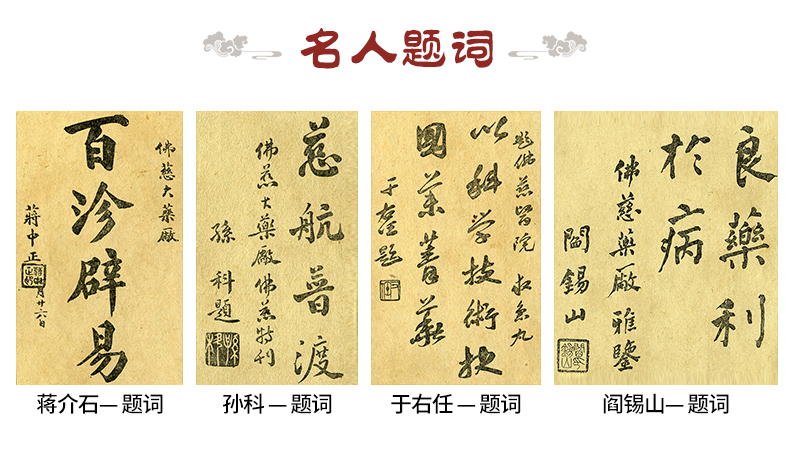 名人题词
佛慈大藥廠
百沴辟易
蔣中正
月廿六日
慈航普渡
佛慈大藥廠佛慈特刊
孫科題
題佛慈
以科學技術抉
國藥菁華
于右任題
良藥利
於病
佛慈藥廠雅鑒
閻錫山
蒋介石—题词
孙科—题词
于右任—题词
阎锡山—题词